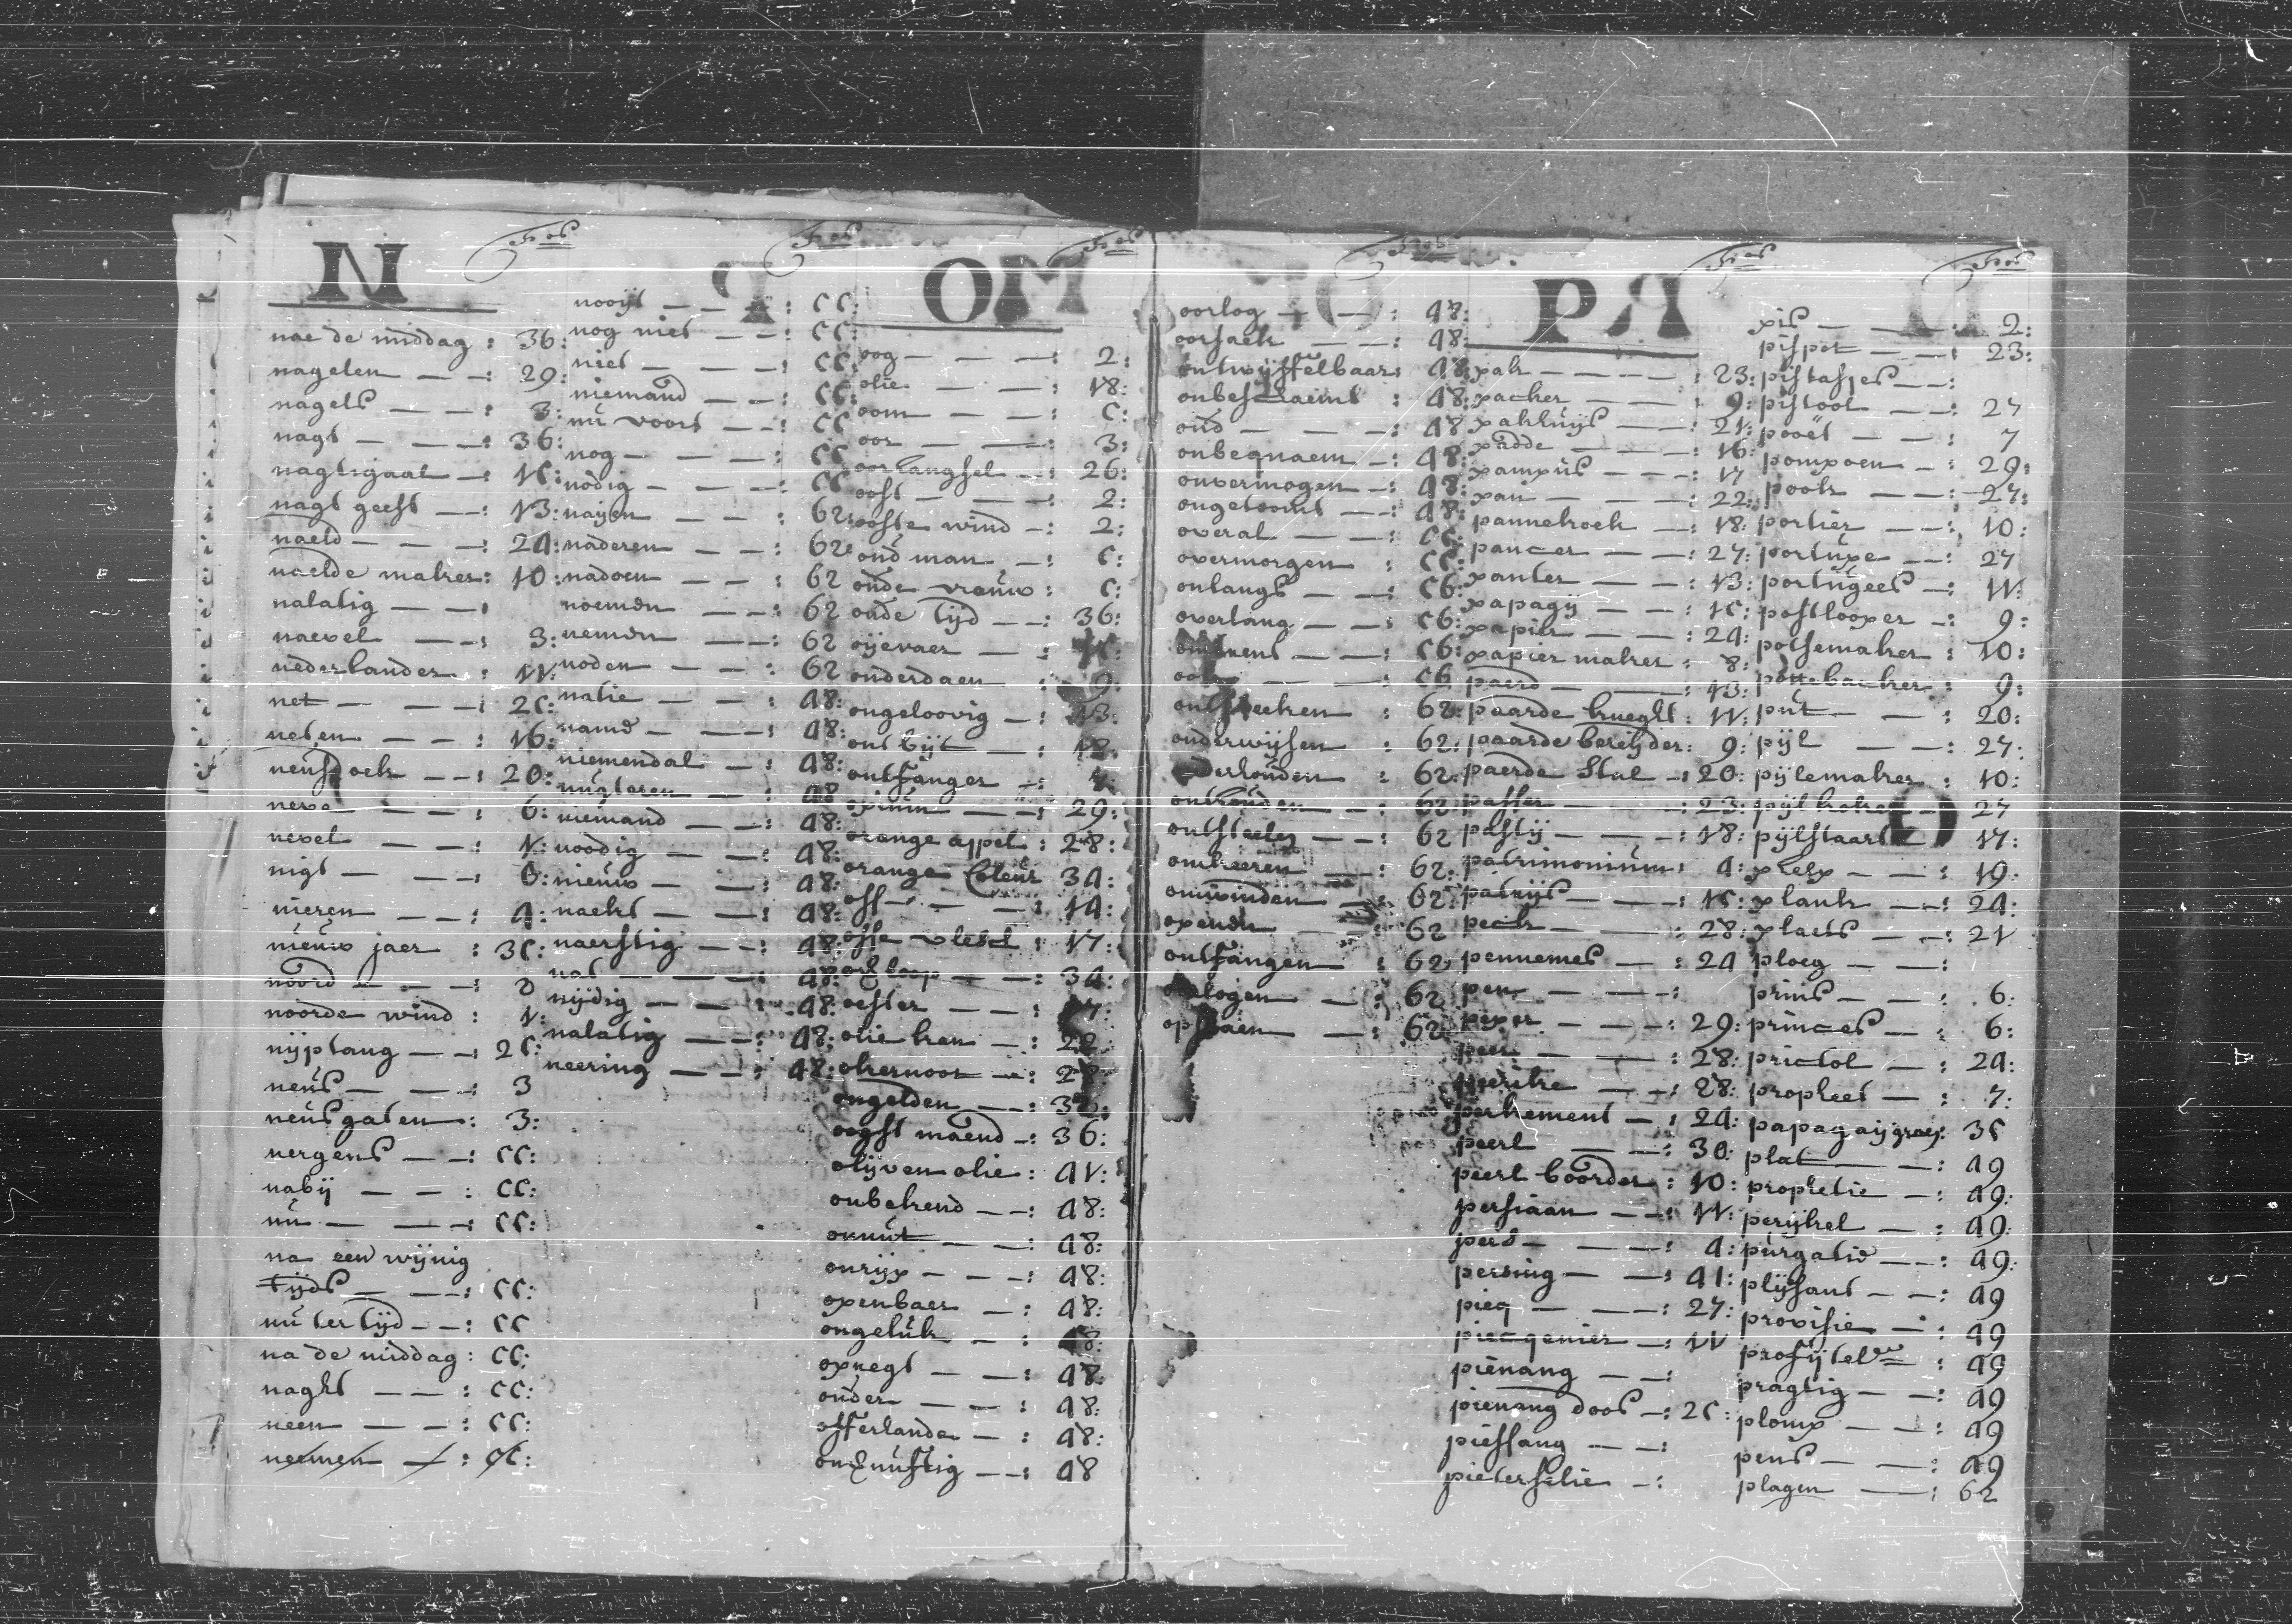 N
Fos
nae de middag : 36:
nagelen — — : 29:
nagels — — : 3:
nagt — — — : 36:
nagtigaal — : 15:
nagt geest — : 13:
naeld — — — : 24:
naelde maker : 10:
nalatig — — :
naevel — — : 3:
nederlander : 11:
net — — — : 25:
neten — — : 16:
neusdoek — — : 20:
neve — — — : 6:
nevel — — : 1:
nigt — — — : 6:
nieren — — : 4:
nieuw jaer : 35:
noord — — — : 2
noorde wind : 1:
nijptang — — : 25:
neus — — — : 3
neusgaten : 3:
nergens — — : 55:
nabij — — : 55:
nu — — — : 55:
na een wijnig
tijds — — — : 55:
nu ter tijd — — : 55
na de middag : 55:
naght — — : 55:
neen — — : 55:
neemen — : 55:
Fos
nooijt — — : 55:
nog niet — — : 55:
niet — — — : 55:
niemand — — : 55:
nu voort — — : 55
nog — — — : 55
nodig — — — : 55
nayen — — : 62:
naderen — — : 62:
nadoen — — : 62
noemen — — : 62
nemen — — : 62
noden — — : 62
natie — — : 48:
namd — — — : 48:
niemendal — : 48:
nugteren — — : 48
niemand — — : 48:
noodig — — — : 48:
nieuw — — : 48:
naekt — — : 48:
naerstig — — : 48:
nat — — — : 48:
nijdig — — — : 48:
nalatig — — : 48:
neering — — : 48:
O
Fos
oog — — — : 2:
olie — — — : 18:
oom — — — : 5:
oor — — — : 3:
oorhangsel — : 26:
oost — — — : 2:
ooste wind — : 2:
oud man — : 5:
oude vrouw : 5:
oude tijd — — : 36:
oijevaer — :
onderdaen : 9:
ongeloovig — : 13:
ontbijt — : 18:
ontfanger — :
opium — — : 29:
orange appel : 28:
orange Coleur 34:
oss — — — : 14:
osse vlees : 17:
— — : 34:
oester — — :
olie kan — : 22:
okernoot — :
ongelden — — : 32:
oogst maend — : 36:
olijven olie : 41:
onbekend — — : 48:
onnut — — : 48:
onrijp — — — : 48:
openbaer — : 48:
ongeluk — : 48:
opregt — — : 48:
onder — — : 48:
offerlande — : 48:
— — : 48
Fos
oorlog — — : 48:
oorsaek — — : 48:
ontwijffelbaar : 48:
onbeschaemt : 48:
oud — — — : 48
onbequaem — : 48:
onvermogen — : 48:
ongetoomt — — : 48:
overal — — : 55:
overmorgen : 55:
onlangs — — : 56:
overlang — — : 56:
— — : 56:
— — 56
ontsteeken : 62:
onderwijsen : 62:
onderhouden : 62:
onthouden — : 62:
ontsteelen — — : 62
omkeeren : 62:
omwinden — : 62:
openen — — : 62
ontfangen : 62:
oorlogen — : 62
opstaen — : 62
P
Fos
pak — — — — : 23:
packer — — : 9:
pakhuijs — — : 21:
padde — — — : 16:
pampus — — : 17
pan — — — : 22:
pannekoek — : 18:
pancer — — : 27:
panter — — : 13:
papagij — — : 15:
papier — — : 24:
papier maker : 8:
paerd — — : 13:
paarde knegt : 11:
paarde berijder : 9:
paerde Stal — : 20:
passer — — : 23:
pastij — — — : 18:
patrimonium : 4:
patrijs — — — : 15:
peck — — — : 28:
pennemes — : 24
pen — — — :
peper — — — : 29:
peer — — — : 28:
persike — — : 28:
perkement — : 24:
peerl — — : 30:
peerl boorder : 10:
persiaan — — : 11:
pers — — — : 4:
persing — — : 41:
pieq — — — : 27:
piecqenier — : 11
pienang — — :
pienang doos — : 25:
piessang — — :
pieterselie — :
Fos
pis — — — : 2:
pispot — — : 23:
pistasjes — — :
pistool — — : 27
pooët — — : 7
pompoen — : 29:
pook — — : 27:
portier — — : 10:
portupe — — : 27
portugees — : 11:
postlooper — : 9:
potsemaker : 10:
pottebacker : 9:
put — — : 20:
pijl — — : 27:
pijlemaker : 10:
pijlkoker — 27
pijlstaart 17:
pleyx — — : 19:
plank — — : 24:
plaets — — : 21
ploeg — — :
prins — — : 6:
princes — : 6:
prictol — : 24:
propheet — : 7:
papagaij groen : 35
plat — — : 49
prophetie — : 49:
perijkel — : 49:
purgatie — — : 49:
plijsant — — : 49
provisie — : 49
profijtel : 49
pragtig — — : 49
plomp — — : 49
pens — — : 49
plagen — — : 62